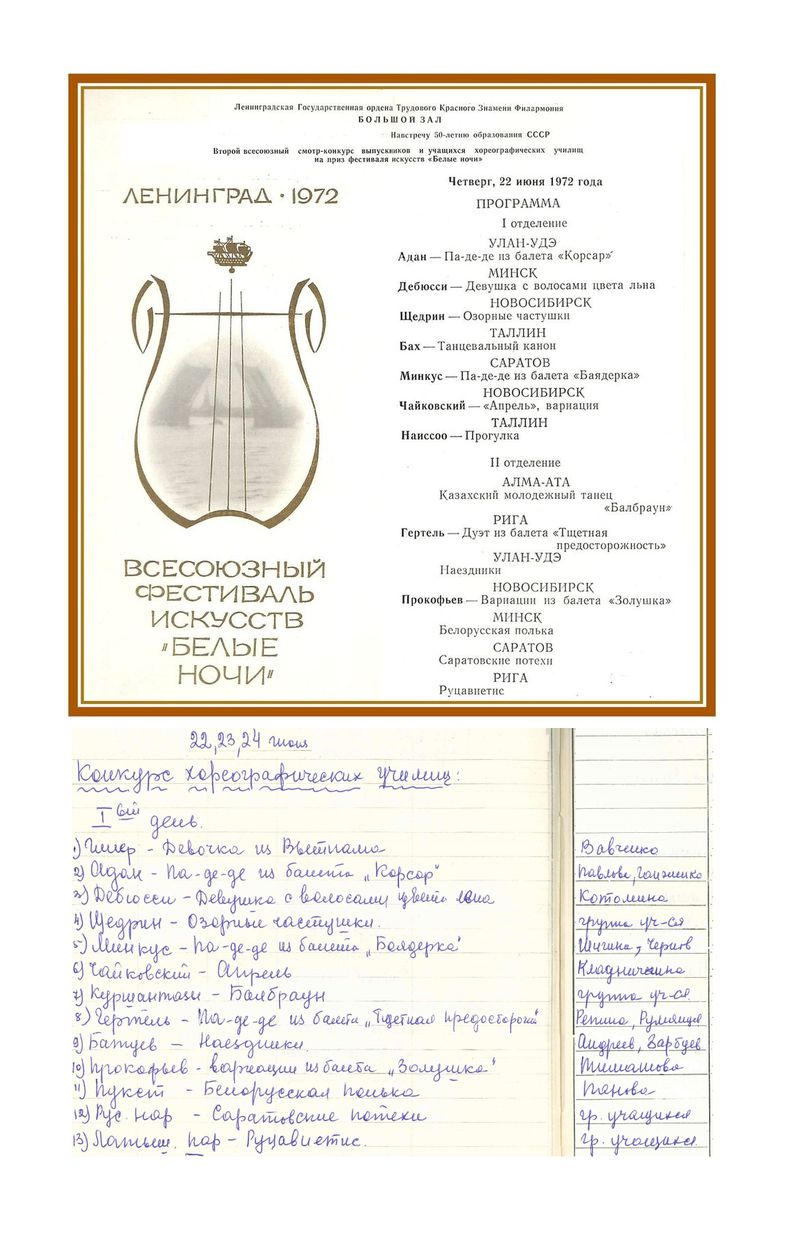 Ленинградская Государственная ордена Трудового Красного Знамени Филармония
БОЛЬШОЙ ЗАЛ
Навстречу 50-летию образования СССР
Второй всесоюзный смотр-конкурс выпускников и учащихся хореографических училищ
на приз фестиваля искусств «Белые ночи»
ЛЕНИНГРАД · 1972
ВСЕСОЮЗНЫЙ
ФЕСТИВАЛЬ
ИСКУССТВ
"БЕЛЫЕ
НОЧИ"
Четверг, 22 июня 1972 года
ПРОГРАММА
I отделение
УЛАН-УДЭ
Адан — Па-де-де из балета «Корсар»
МИНСК
Дебюсси — Девушка с волосами цвета льна
НОВОСИБИРСК
Щедрин — Озорные частушки
ТАЛЛИН
Бах — Танцевальный канон
САРАТОВ
Минкус — Па-де-де из балета «Баядерка»
НОВОСИБИРСК
Чайковский — «Апрель», вариация
ТАЛЛИН
Наиссоо — Прогулка
II отделение
АЛМА-АТА
Казахский молодежный танец
«Балбраун»
РИГА
Гертель — Дуэт из балета «Тщетная
предосторожность»
УЛАН-УДЭ
Наездники
НОВОСИБИРСК
Прокофьев — Вариации из балета «Золушка»
МИНСК
Белорусская полька
САРАТОВ
Саратовские потехи
РИГА
Руцавиетис
22, 23, 24 июня
Конкурс хореографических училищ:
I ый день.
1) - Девочка из Вьетнама Вавченко
2) Адан - Па-де-де из балета „Корсар" Павлова,
3) Дебюсси - Девушка с волосами цвета льна Котомина
4) Щедрин - Озорные частушки. группа уч-ся
5) Минкус - Па-де-де из балета „Баядерка" Шигина, Чернов
6) Чайковский - Апрель
7) Курмангази - Балбраун группа уч-ся.
8) Гертель - Па-де-де из балета „Тщетная Репина, Румянцев
9) Батуев — Наездники. Андреев,
10) Прокофьев - вариации из балета „Золушка" Тимашова
11) Пукст - Белорусская полька Панова
12) Рус. нар - Саратовские потехи гр. учащихся
13) Латыш. нар - Руцавиетис. гр. учащихся